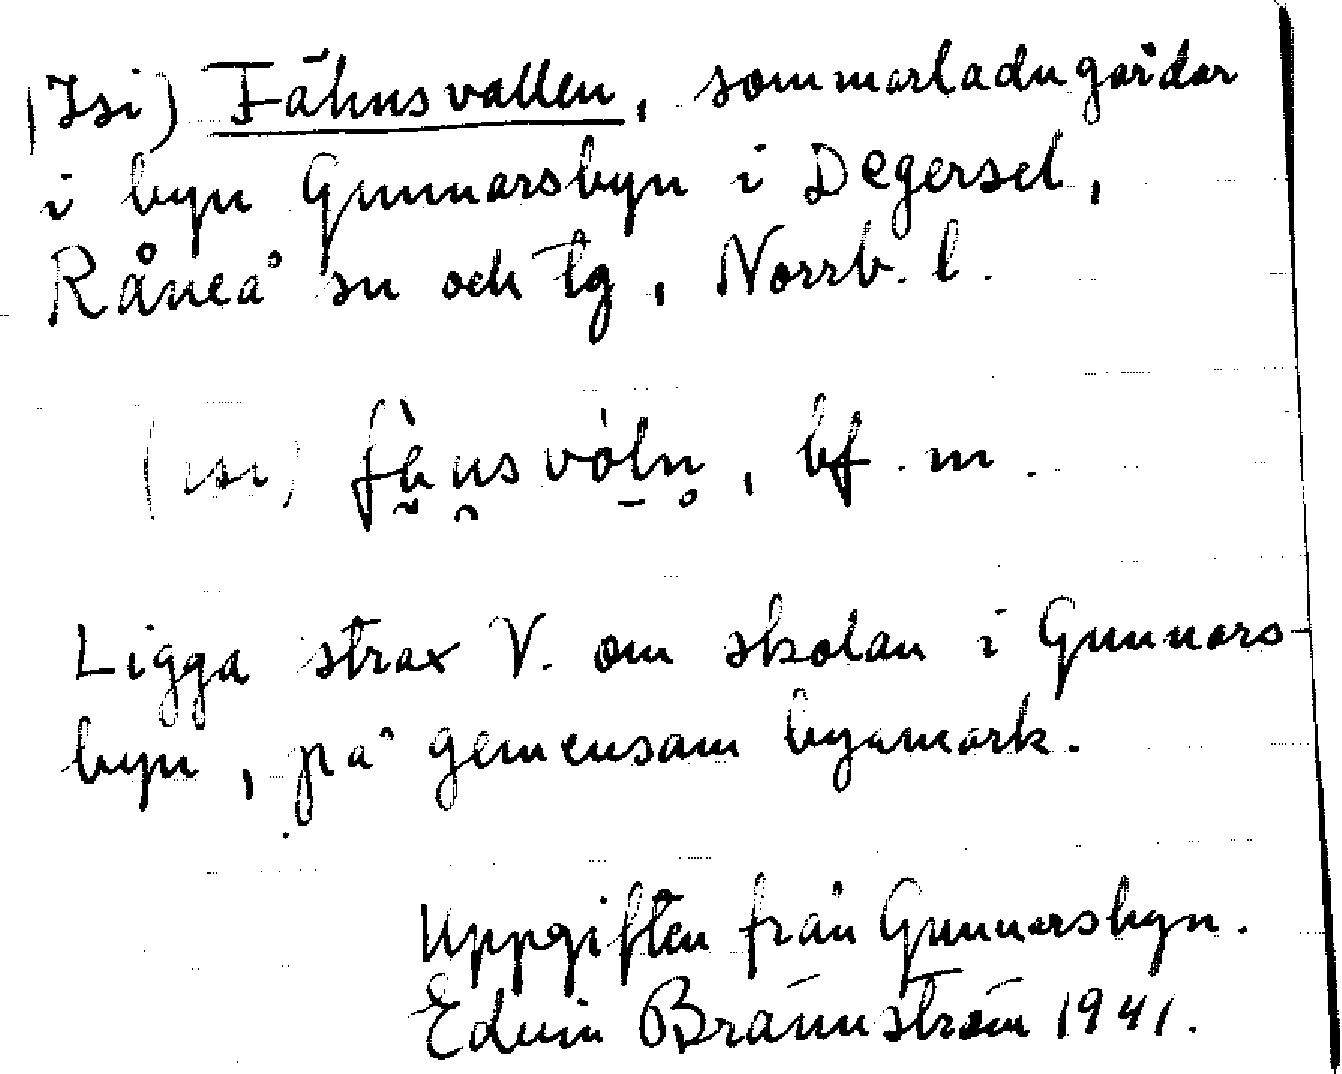 (Isi) Fähusvallen, sommarladugårdar
i byn Gunnarsbyn i Degersel,
Råneå sn och tg, Norrb. l.
(isi) bf. m.
Ligga strax V. om skolan i Gunnars-
byn, på gemensam byamark.
Uppgiften från Gunnarsbyn.
Edvin Brännström 1941.